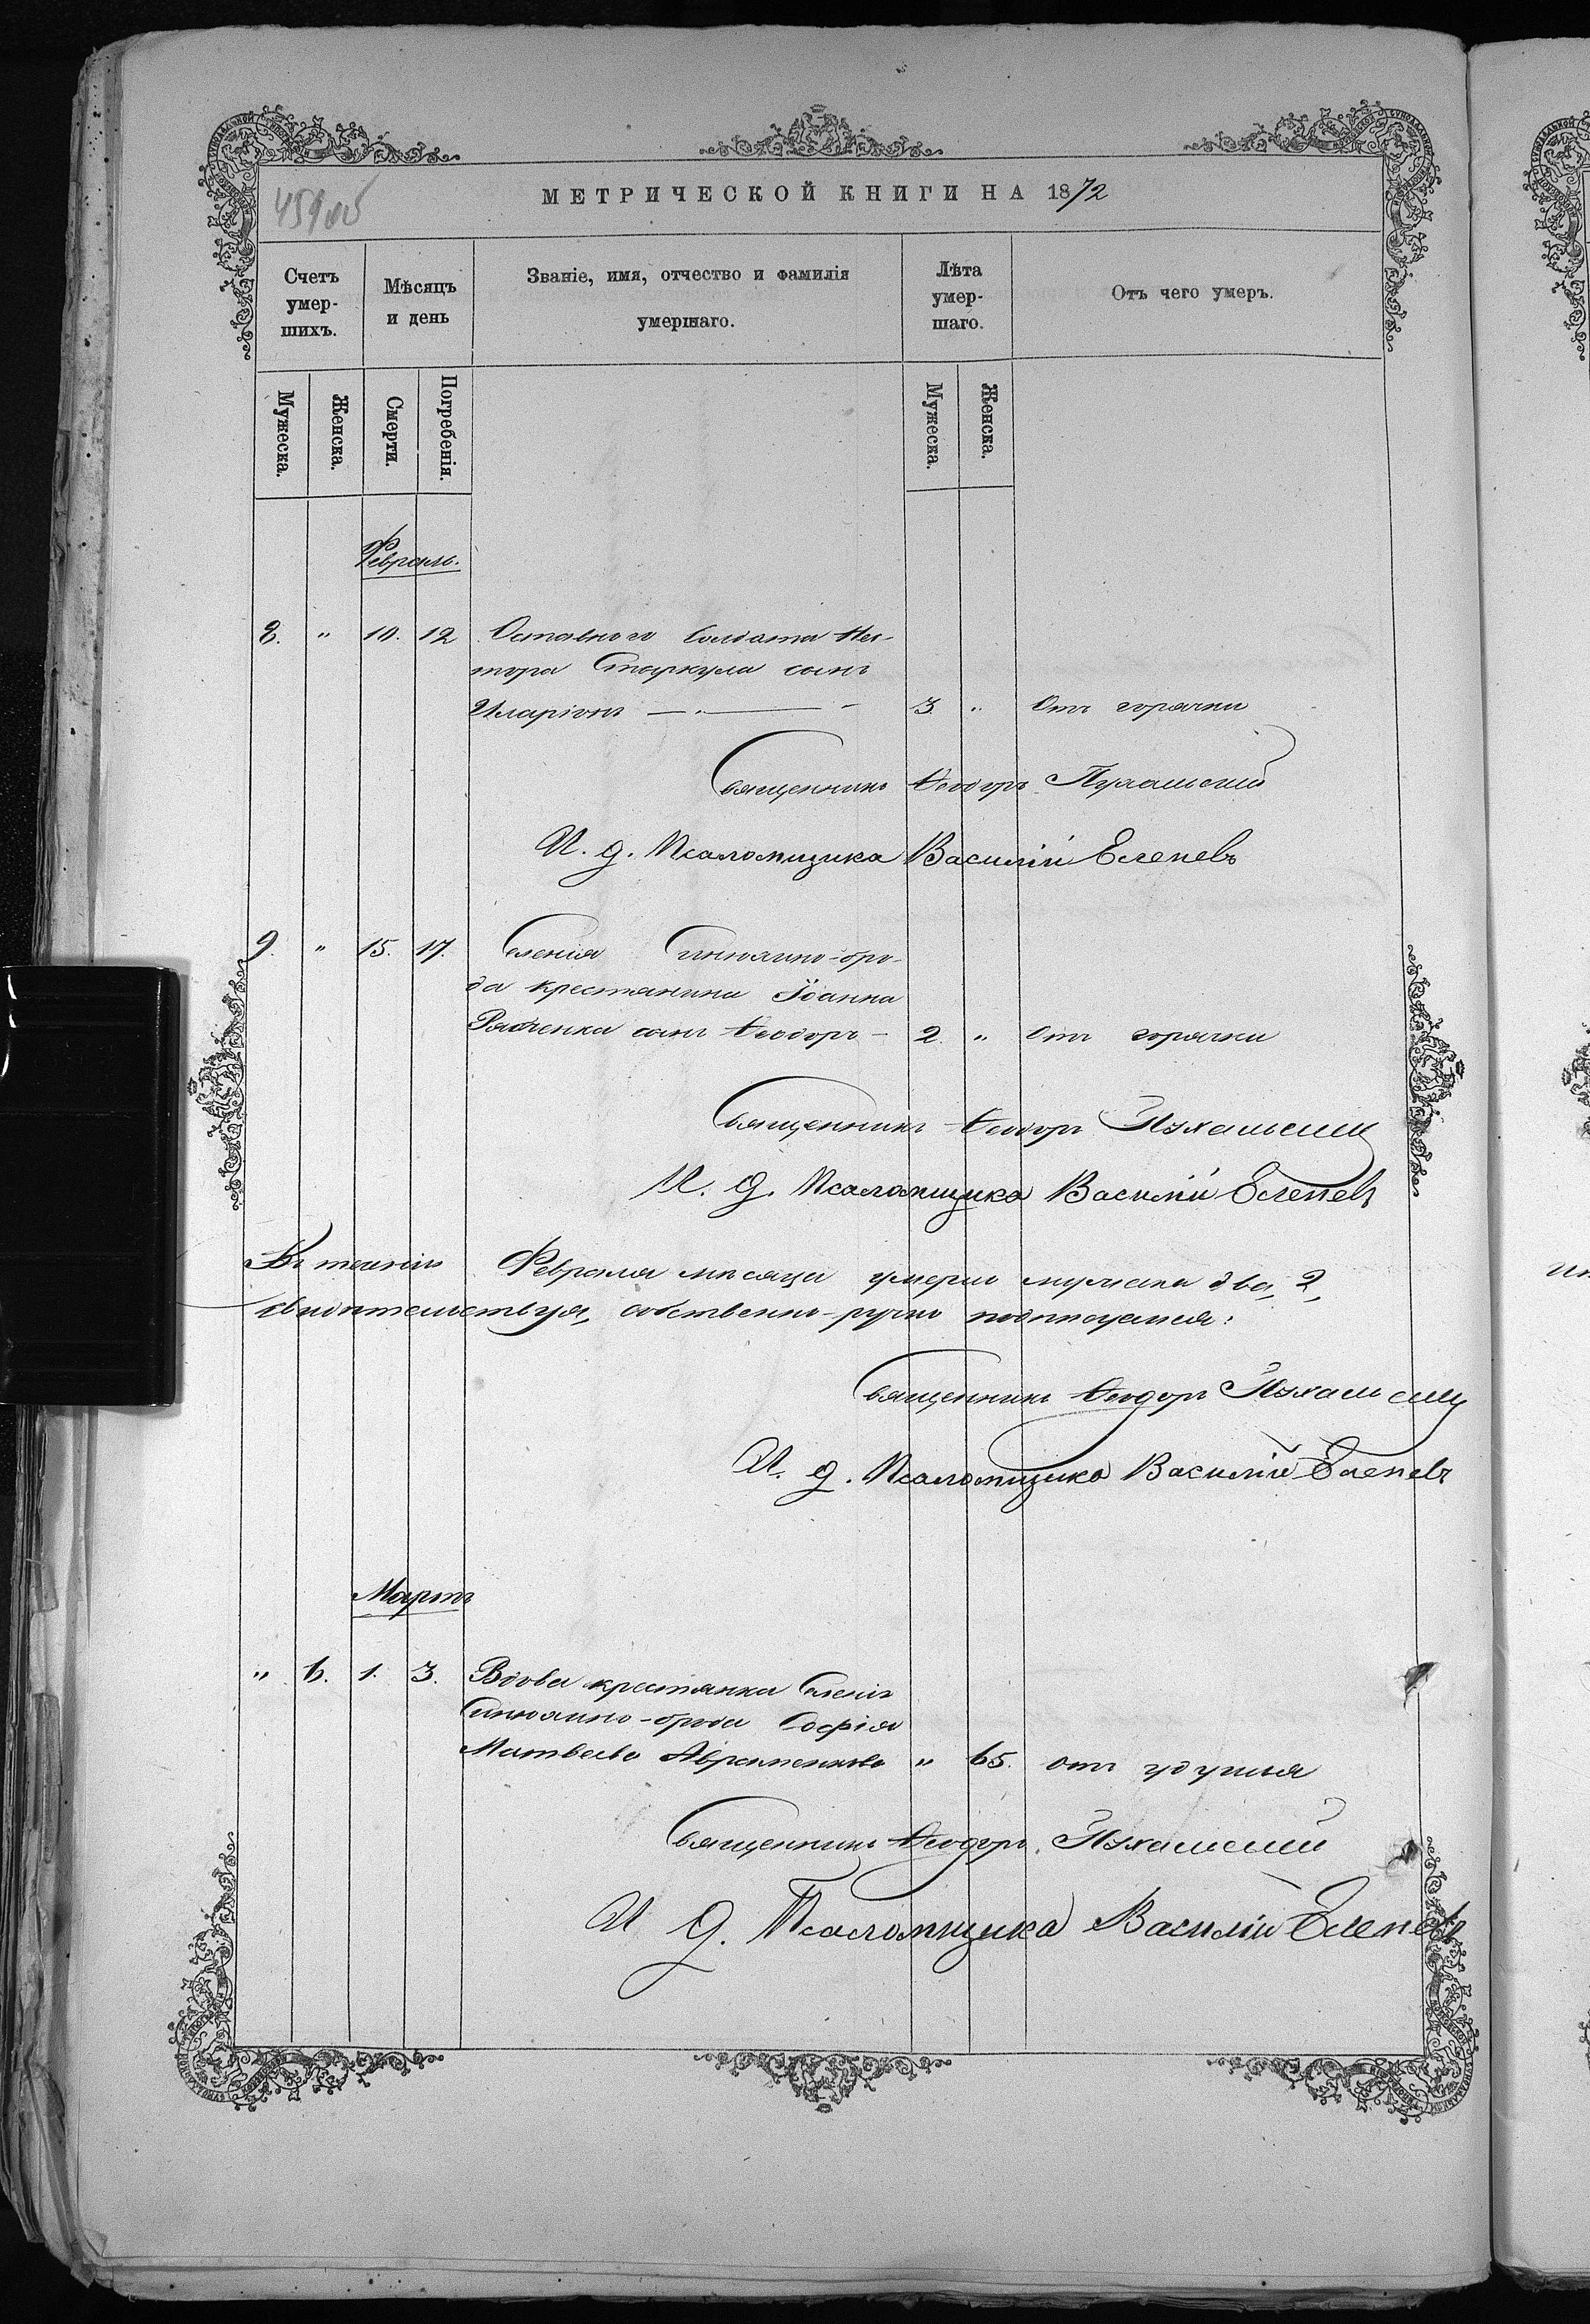 459об
МЕТРИЧЕСКОЙ КНИГИ НА 1872
Счетъ умершихъ.
Мѣсяцъ и день
Званіе, имя, отчество и фамилія умершаго.
Лѣта умершаго.
Отъ чего умеръ.
Мужеска.
Женска.
Смерти.
Погребенія.
Мужеска.
Женска.
Февраль.
8. " 10. 12 Солдата Нес-
тора Старкула сынъ
Иларіонъ — " — 3 " Отъ горячки
Священникъ Ѳеодоръ
И. д. Псаломщика Василій
9. " 15. 17. Селенія Синюхино-бро-
да крестянина Іоанна
сынъ Ѳеодоръ - 2. " Отъ горячки
Священникъ Ѳеодоръ
И. д. Псаломщика Василій
Въ теченіи Февраля мѣсяца умерло мужеска два, 2,
свидѣтельствуя, собственно-ручно подписуемся:
Священникъ Ѳеодоръ
И. д. Псаломщика Василій
Мартъ
" 6. 1. 3. Вдова крестянка Селенія
Синюхино-брода Софія
Матвеева Авраменкова " 65. отъ удушья
Священникъ Ѳеодоръ
И д. Псаломщика Василій